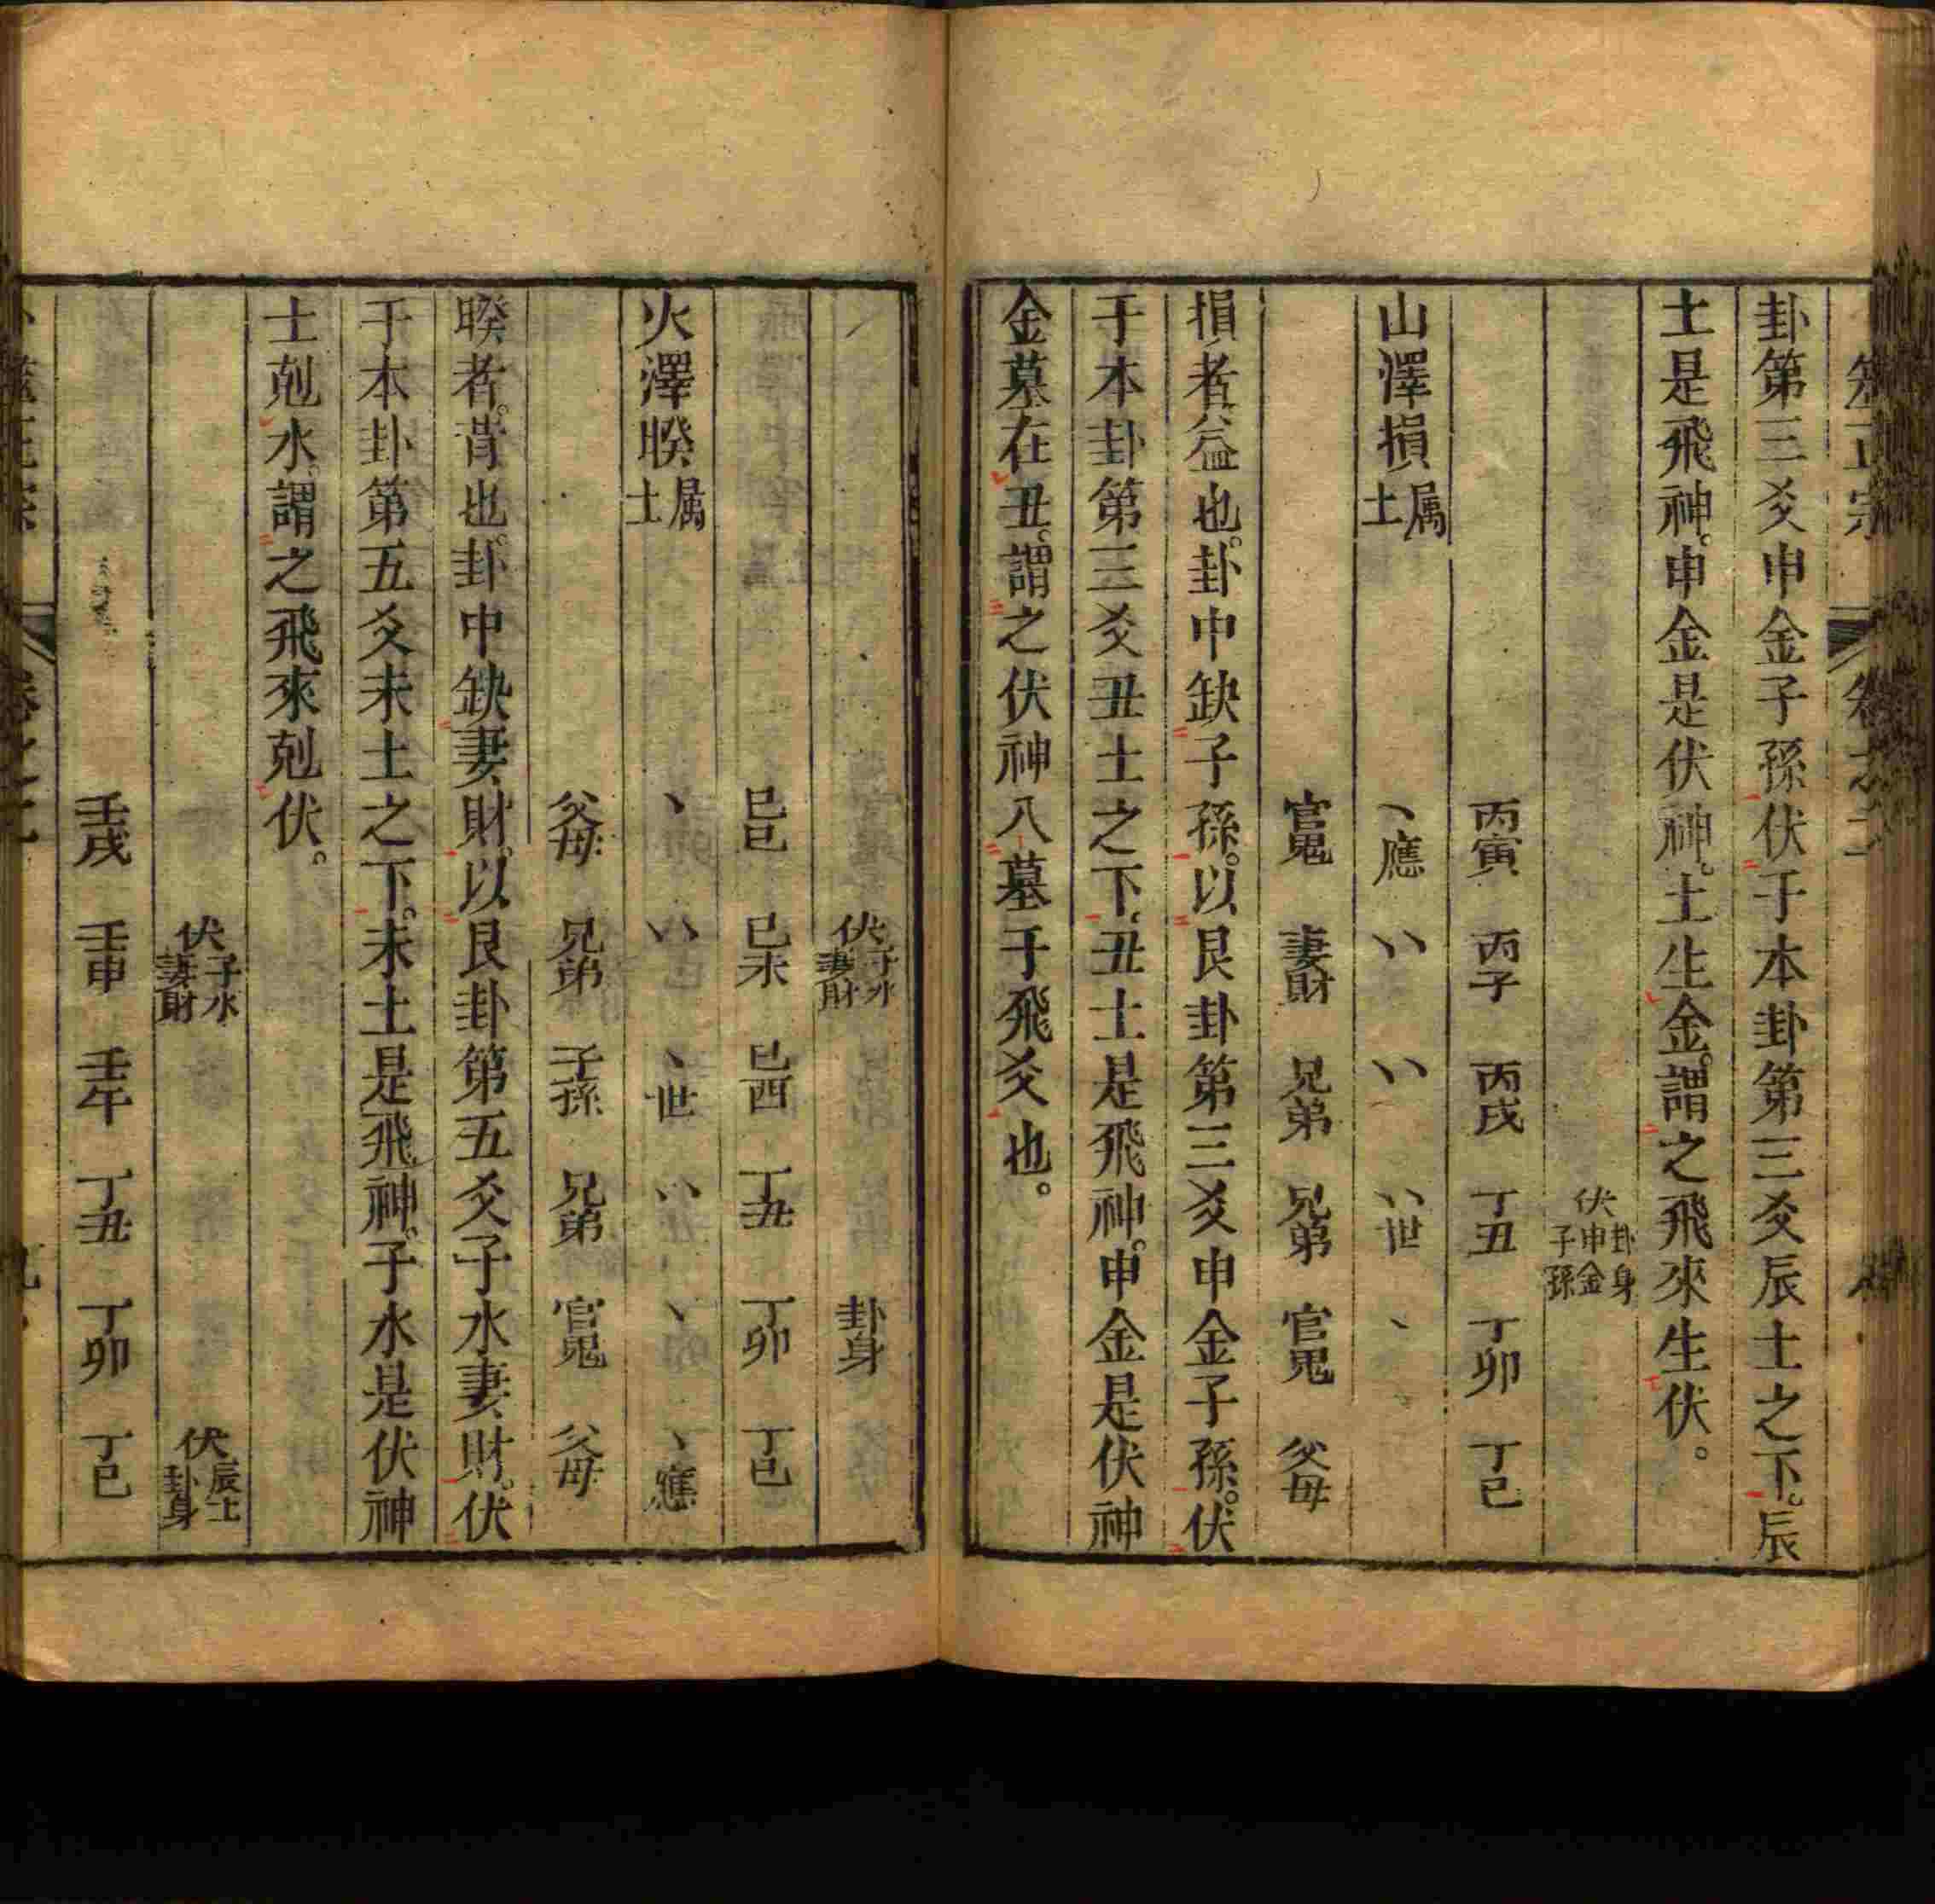 卦第三爻申金子孫伏于本卦第三爻辰土之下。辰
土是飛神。申金是伏神。土生金。謂之飛來生伏。
伏申金子孫 卦身
丙寅 丙子 丙戌 丁丑 丁卯 丁巳
山澤損 属土 、應 〃 〃 〃世 、 、
官鬼 妻財 兄弟 兄弟 官鬼 父母
損者益也。卦中缺子孫。以艮卦第三爻申金子孫。伏
于本卦第三爻丑土之下。丑土是飛神。申金是伏神
金墓在丑。謂之伏神入墓于飛爻也。
伏子水妻財 卦身
巳巳 巳未 巳酉 丁丑 丁卯 丁巳
火澤睽 属土 、 〃 、世 〃 、 、應
父母 兄弟 子孫 兄弟 官鬼 父母
睽者。背也。卦中缺妻財。以艮卦第五爻子水妻財。伏
于本卦第五爻未土之下。未土是飛神。子水是伏神
土剋水。謂之飛來剋伏。
伏子水妻財 伏辰土卦身
壬戌 壬申 壬午 丁丑 丁卯 丁巳